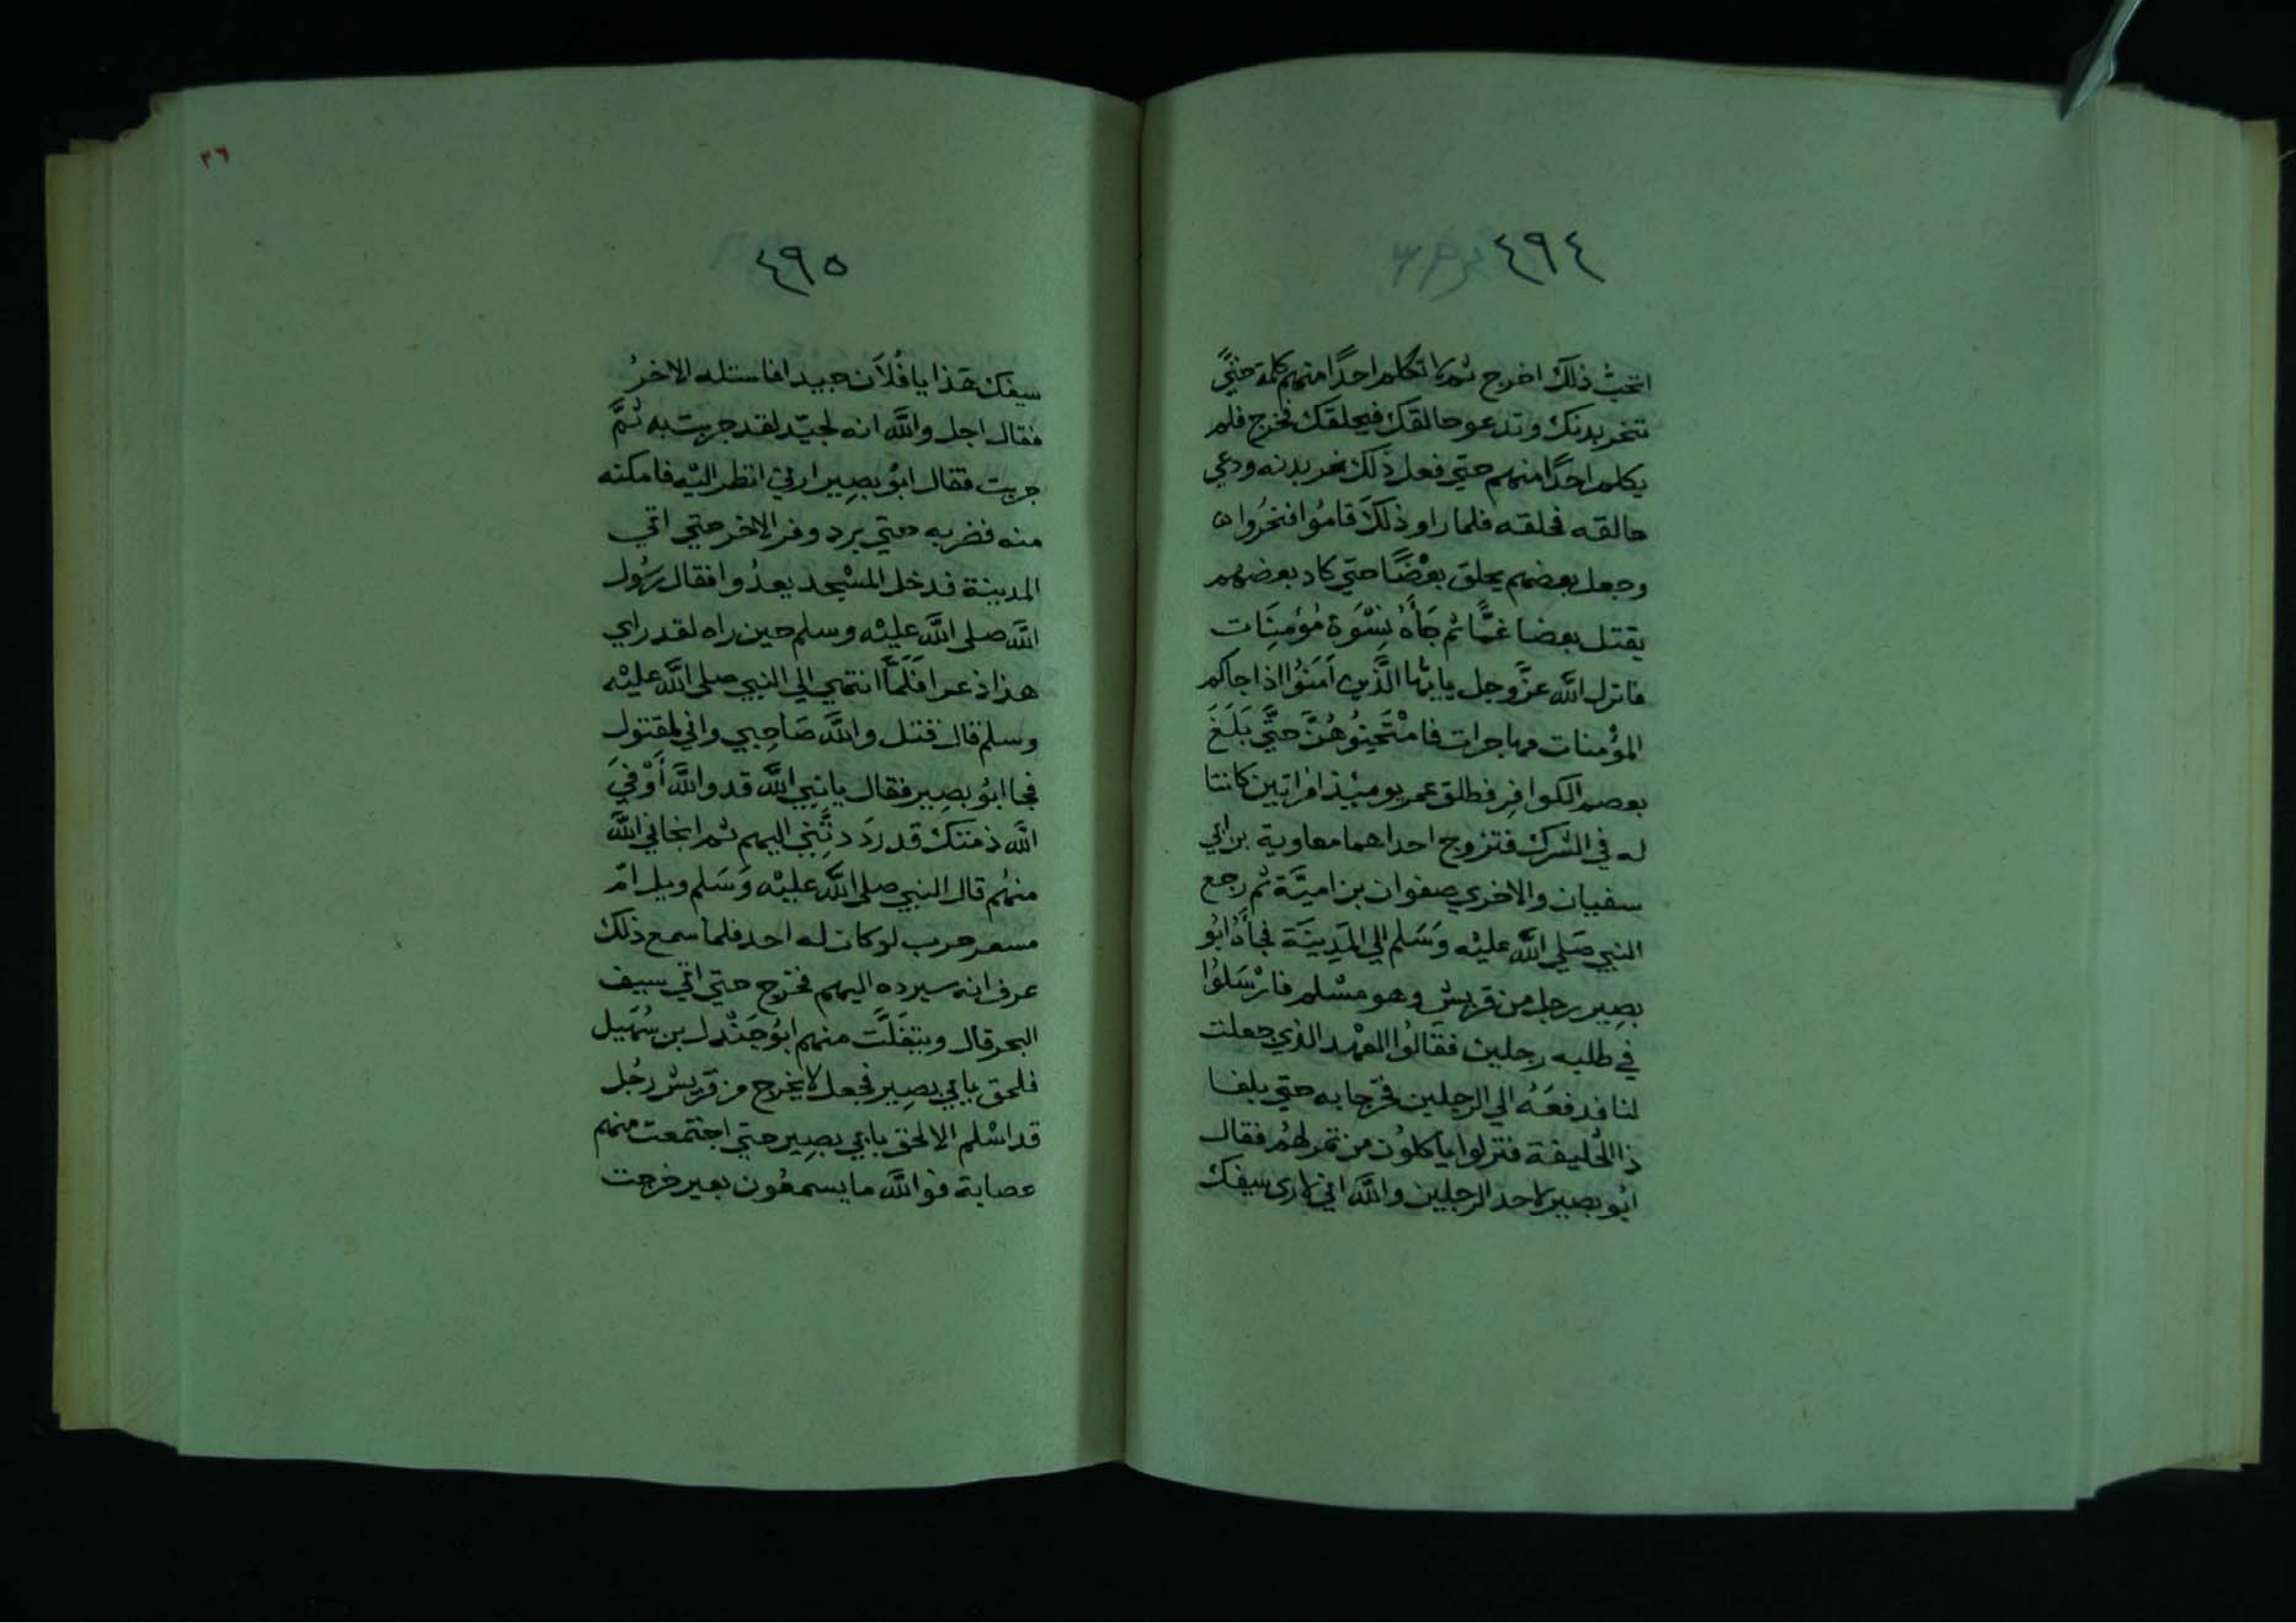 ٤٩٤
اتحب ذلك اخرج ثم لا تكلم احدًا منهم كلمة حتيَّ
تنحر بدنك وتدعو حالقك فيحلقك فخرج فلم
يكلم احدًا منهم حتي فعل ذلك نحر بدنه ودعي
حالقه فحلقه فلما راو ذلكَ قامُوا فنحُروا
وجعل بعضهم يحلق بعْضًا حتي كاد بعضهم
يقتل بعضا غمًّا ثم جَأَهُ نِسْوَة مُؤمِنَات
فانزل اللَّه عزَّوجل يايها الَّذين اَمَنوُا اذا جاكم
المؤمنات مهاجرات فامْتَحِنوُهُنَّ حتَّي بَلَغَ
بعصم الكوافِر فطلق عمر يوميئذ امراتين كانتا
له في الشرك فتزوج احداهما معاوية بن ابي
سفيان والاخري صفوان بن اميَّة ثم رجع
النبي صَلي اللَّه عليْه وَسَلم الي المَدِينَة فجأهُ ابُو
بصِير رجل من قريش وهو مسْلم فارْسَلوُا
في طلبه رجلين فقالوُا العهْد الذي جعلت
لنا فدفعَهُ الي الرجلين فخرجا به حتي بلغا
ذا الحُليفة فنزلوا ياكلوُن من تمر لهُم فقال
ابُو بصير لاحد الرجلين واللَّه اني لاري سيفك
٣٦
٤٩٥
سيفك هَذا يا فُلاَن جيدا فاستله الاخرُ
فقال اجل واللَّه انه لجيّد لقد جربت به ثُمَّ
جربت فقال ابُو بصِير ارني انظر اليْه فامكنه
منه فضربه حتي برد وفر الاخر حتي اتي
المدينة فدخل المسْجد يعدُوا فقال رسُول
اللَّه صلى اللَّه عليْه وسلم حين راه لقد راي
هذا ذعرا فَلَمَّا انتهي الي النبي صلى اللَّه عليْه
وسلم قال قتل واللَّه صَاحِبي واني لمقتول
فجا ابُو بصِير فقال يا نبِي اللَّه قد واللَّه أَوْفيَ
اللَّه ذمتك قد رَدَدتَّنِي اليهم ثم انجاني اللَّه
منهُم قال النبي صلى اللَّه عليْه وَسَلم ويل امّ
مسعر حرب لو كان له احد فلما سمع ذلك
عرف انه سيرده اليهم فخرج حتي اتي سيف
البحر قال وينفَلَّت منهم ابُو جَنْدل بن سُهَيل
فلحق بابي بصِير فجعل لا يخرج من قريش رجُل
قد اسْلم الا لحق بابي بصِير حتي اجتمعت منهم
عصابة فواللَّه ما يسمعُون بعير خرجت